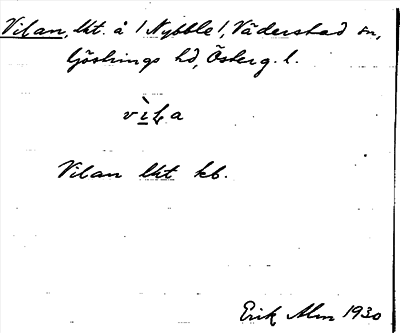 Vilan, lht. å /Nybble/, Väderstad sn,
Göstrings hd, Österg. l.
vìla
Vilan lht kb.
Erik Alm 1930